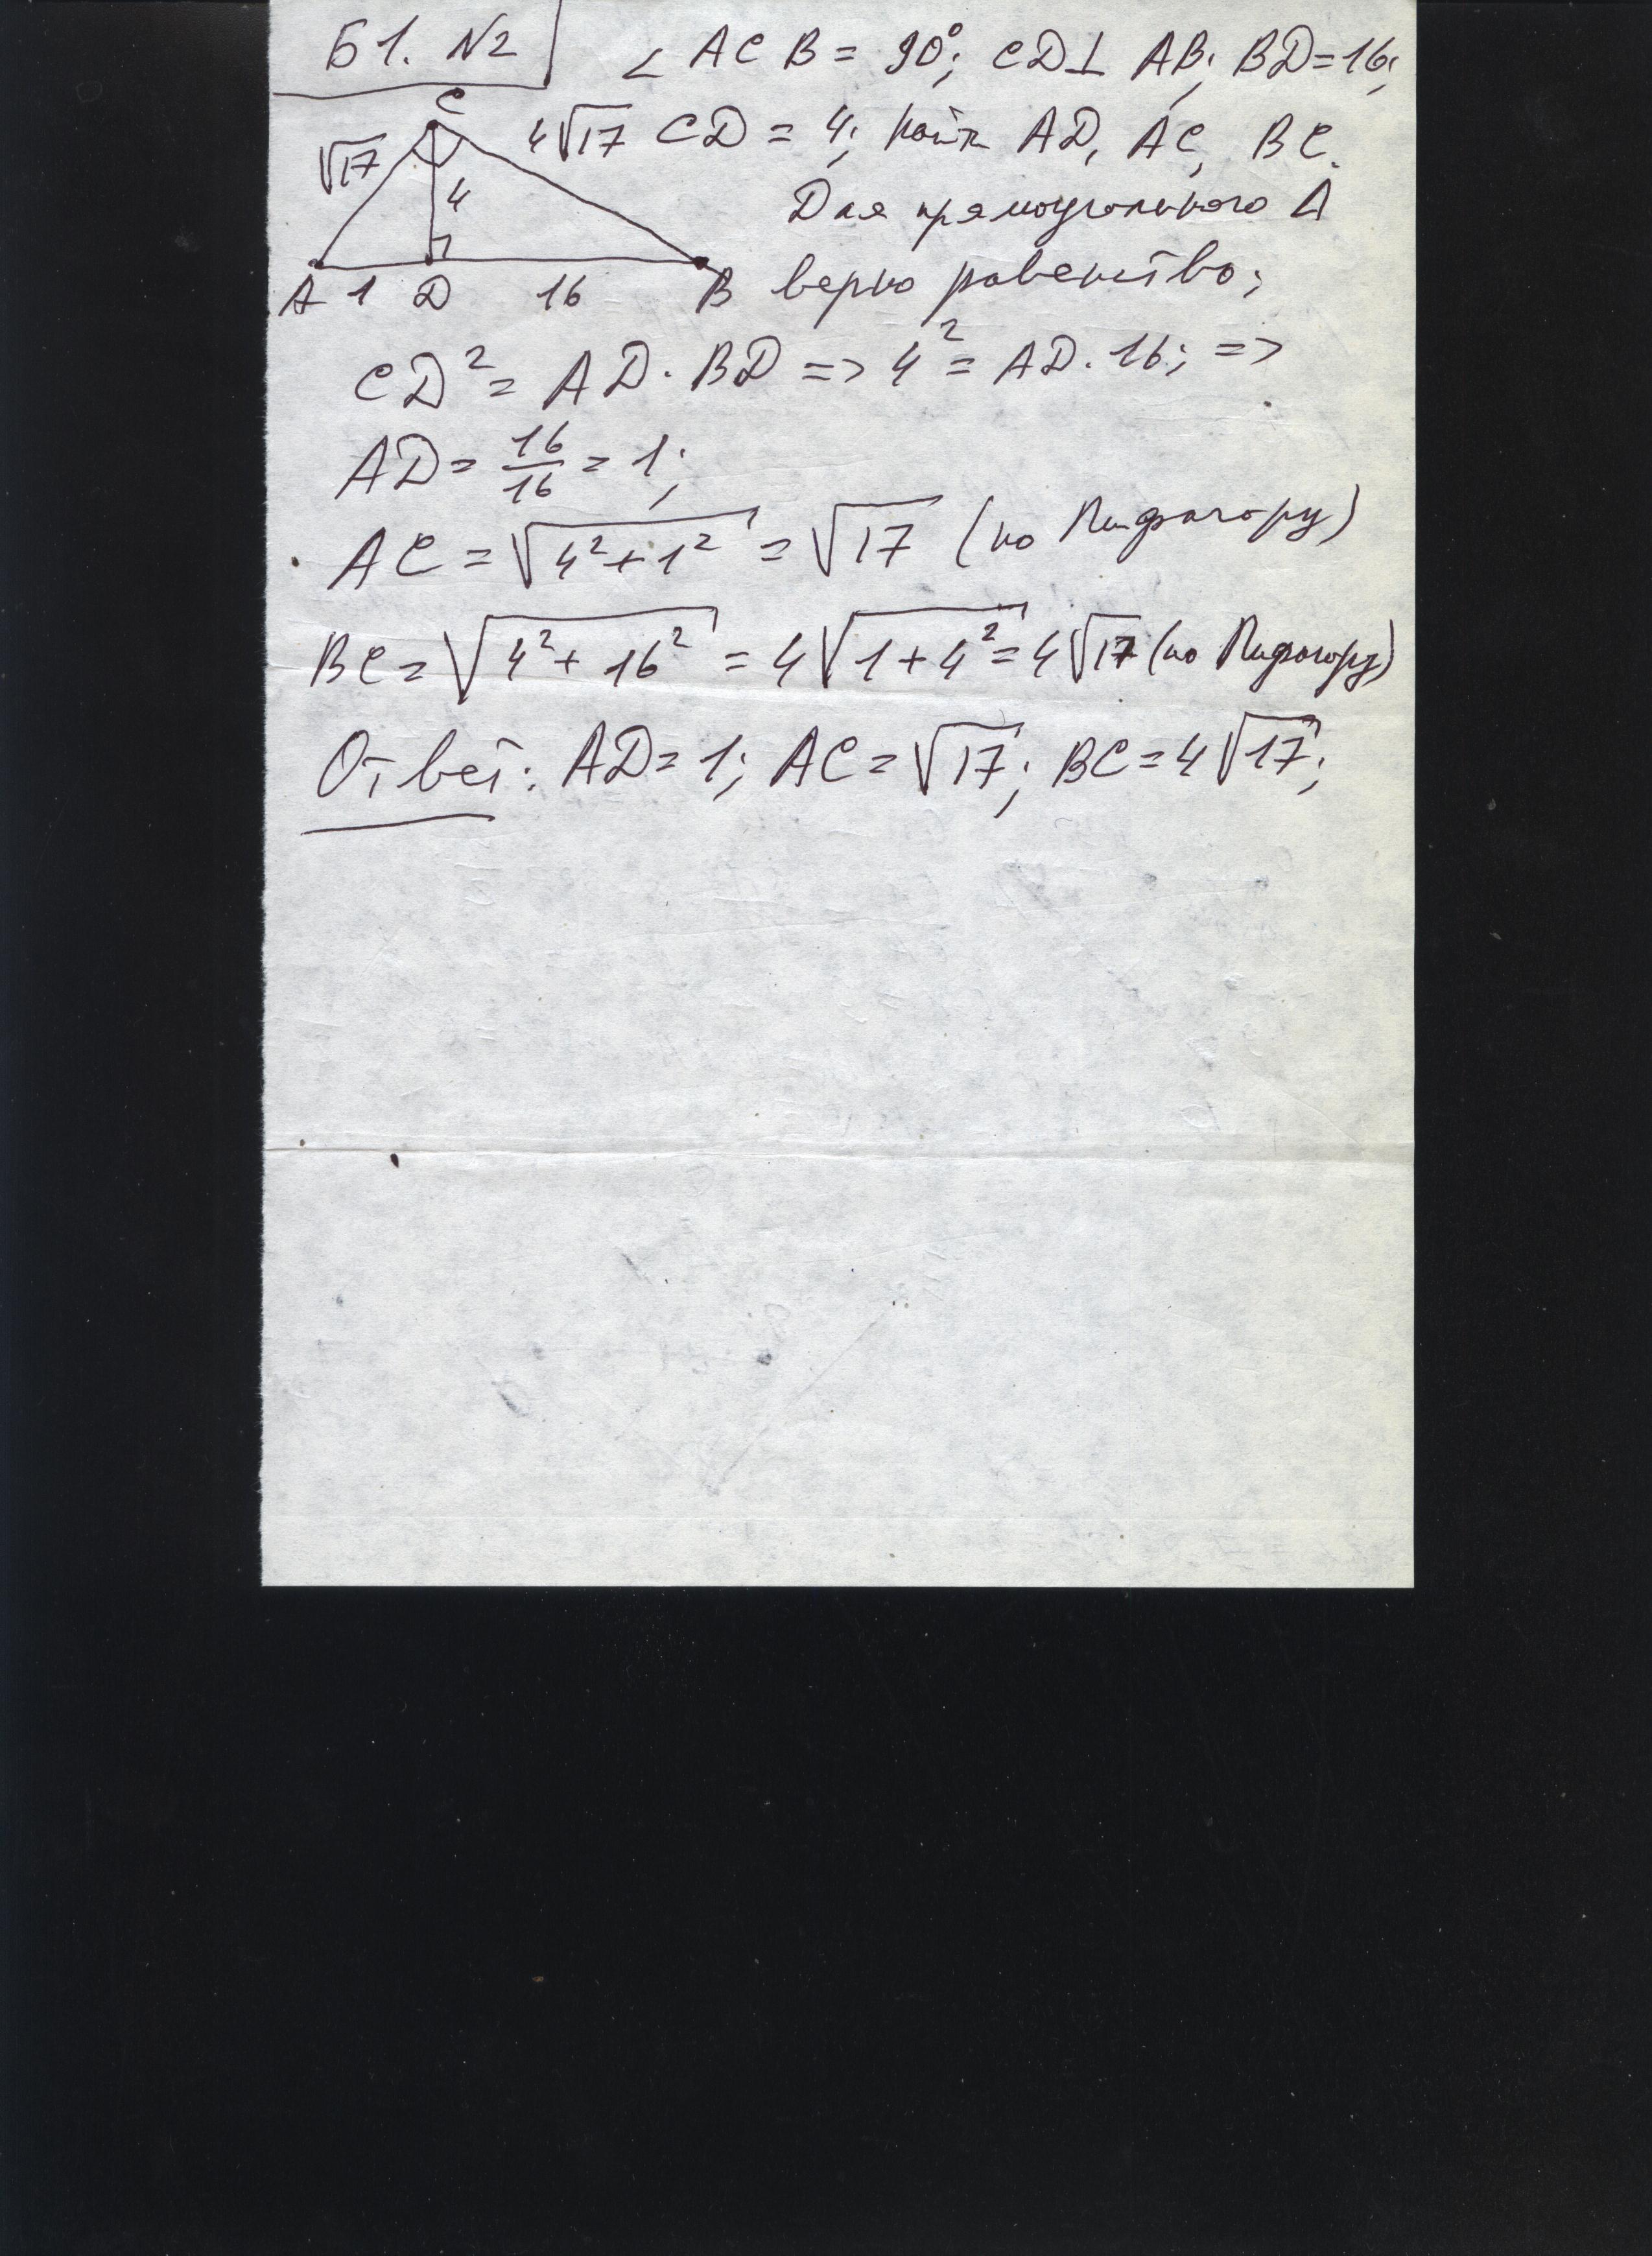 Б1. №2
∠ACB = 90°; CD⊥AB; BD=16;
C
√17 4√17 CD = 4; Найти AD, AC, BC.
4
Для прямоугольного Δ
A 1 D 16 B верно равенство;
CD² = AD·BD => 4² = AD·16; =>
AD = 16/16 = 1;
AC = √(4²+1²) = √17 (по Пифагору)
BC = √(4²+16²) = 4√(1+4²) = 4√17 (по Пифагору)
Ответ: AD=1; AC=√17; BC=4√17;